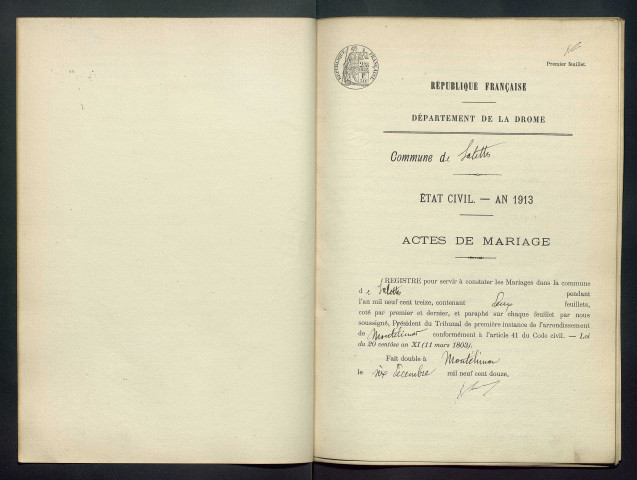 Premier feuillet.
RÉPUBLIQUE FRANÇAISE
RÉPUBLIQUE FRANÇAISE
DÉPARTEMENT DE LA DROME
Commune de Salettes
ÉTAT CIVIL. — AN 1913
ACTES DE MARIAGE
REGISTRE pour servir à constater les Mariages dans la commune
de Salettes pendant
l'an mil neuf cent treize, contenant deux feuillets,
coté par premier et dernier, et paraphé sur chaque feuillet par nous
soussigné, Président du Tribunal de première instance de l'arrondissement
de Montélimar conformément à l'article 41 du Code civil. — Loi
du 20 ventôse an XI (11 mars 1803).
Fait double à Montélimar
le dix Décembre mil neuf cent douze,